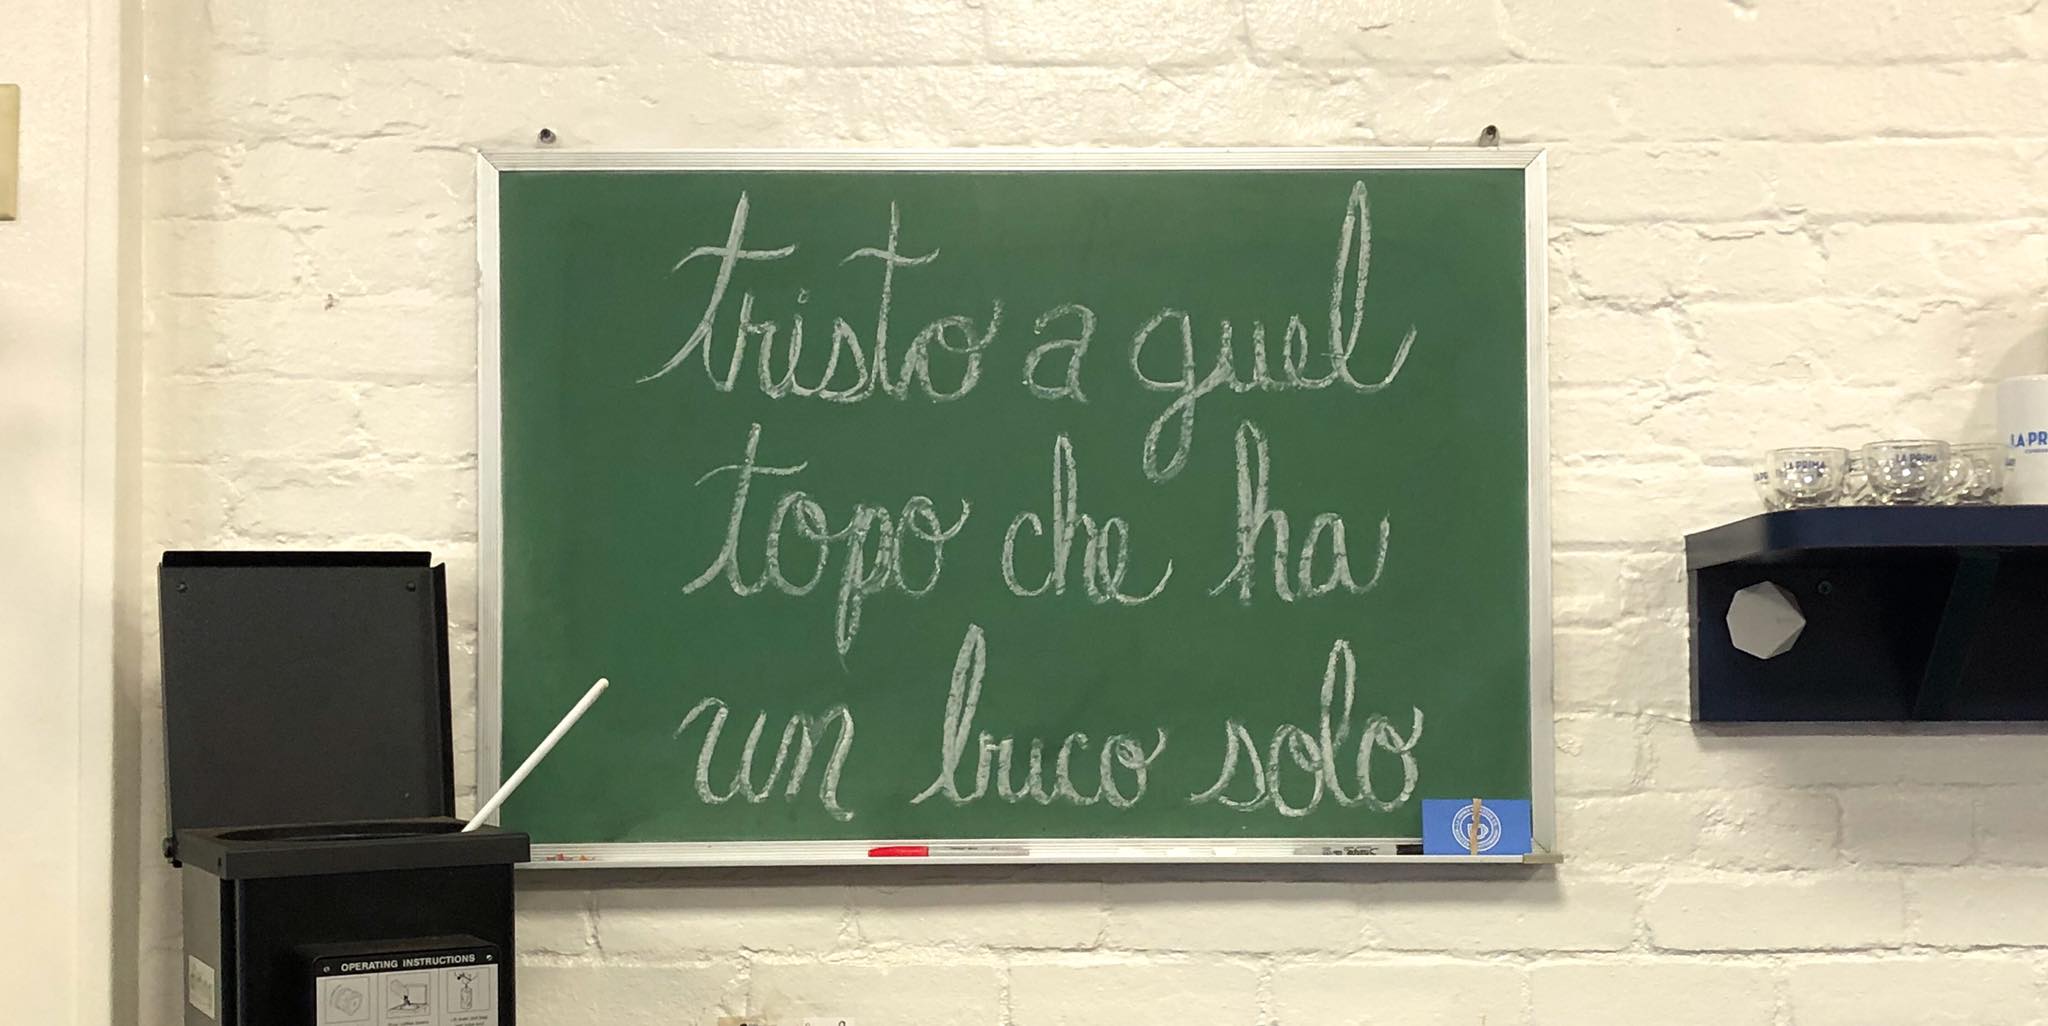 tristo a quel
topo che ha
un buco solo
LA PRIMA
LA PRIMA
LA PR
OPERATING INSTRUCTIONS